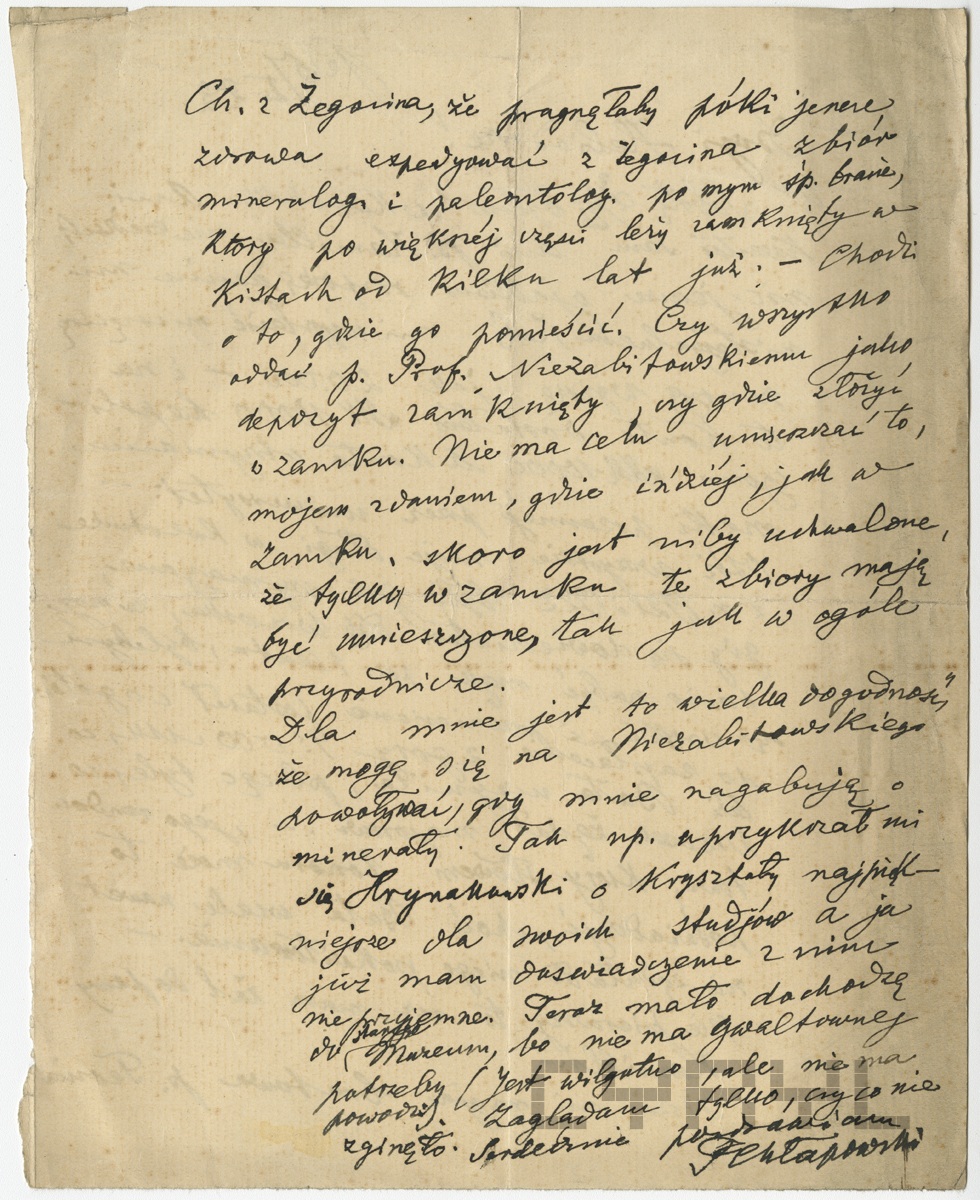 Ch. z Żegocina, że pragnęłaby póki jeszcze
zdrowa expedyować z Żegocina zbiór
mineralog. i paleontolog. po mym śp. bracie,
który po większéj części leży zamknięty w
kistach od kilku lat już. — Chodzi
o to, gdzie go pomieścić. Czy wszystko
oddać p. Prof. Niezabitowskiemu jako
depozyt zamknięty, czy gdzie złożyć
w zamku. Nie ma celu umieszczać to,
mojem zdaniem, gdzie indziéj, jak w
Zamku, skoro jest niby uchwalone,
że tylko w zamku te zbiory mają
być umieszczone, tak jak w ogóle
przyrodnicze.
Dla mnie jest to wielka dogodność,
że mogę się na Niezabitowskiego
powoływać, gdy mnie nagabują o
minerały. Tak np. uprzykrzał mi
się Hrynakowski o kryształy najpięk-
niejsze dla swoich studjów a ja
już mam doświadczenie z nim
nieprzyjemne. Teraz mało dochodzę
do Muzeum, bo nie ma gwałtownej
potrzeby (Jest wilgotno, ale nie ma
powodzi). Zaglądam tylko, czy co nie
zginęło. Serdecznie pozdrawiam
FChłapowski